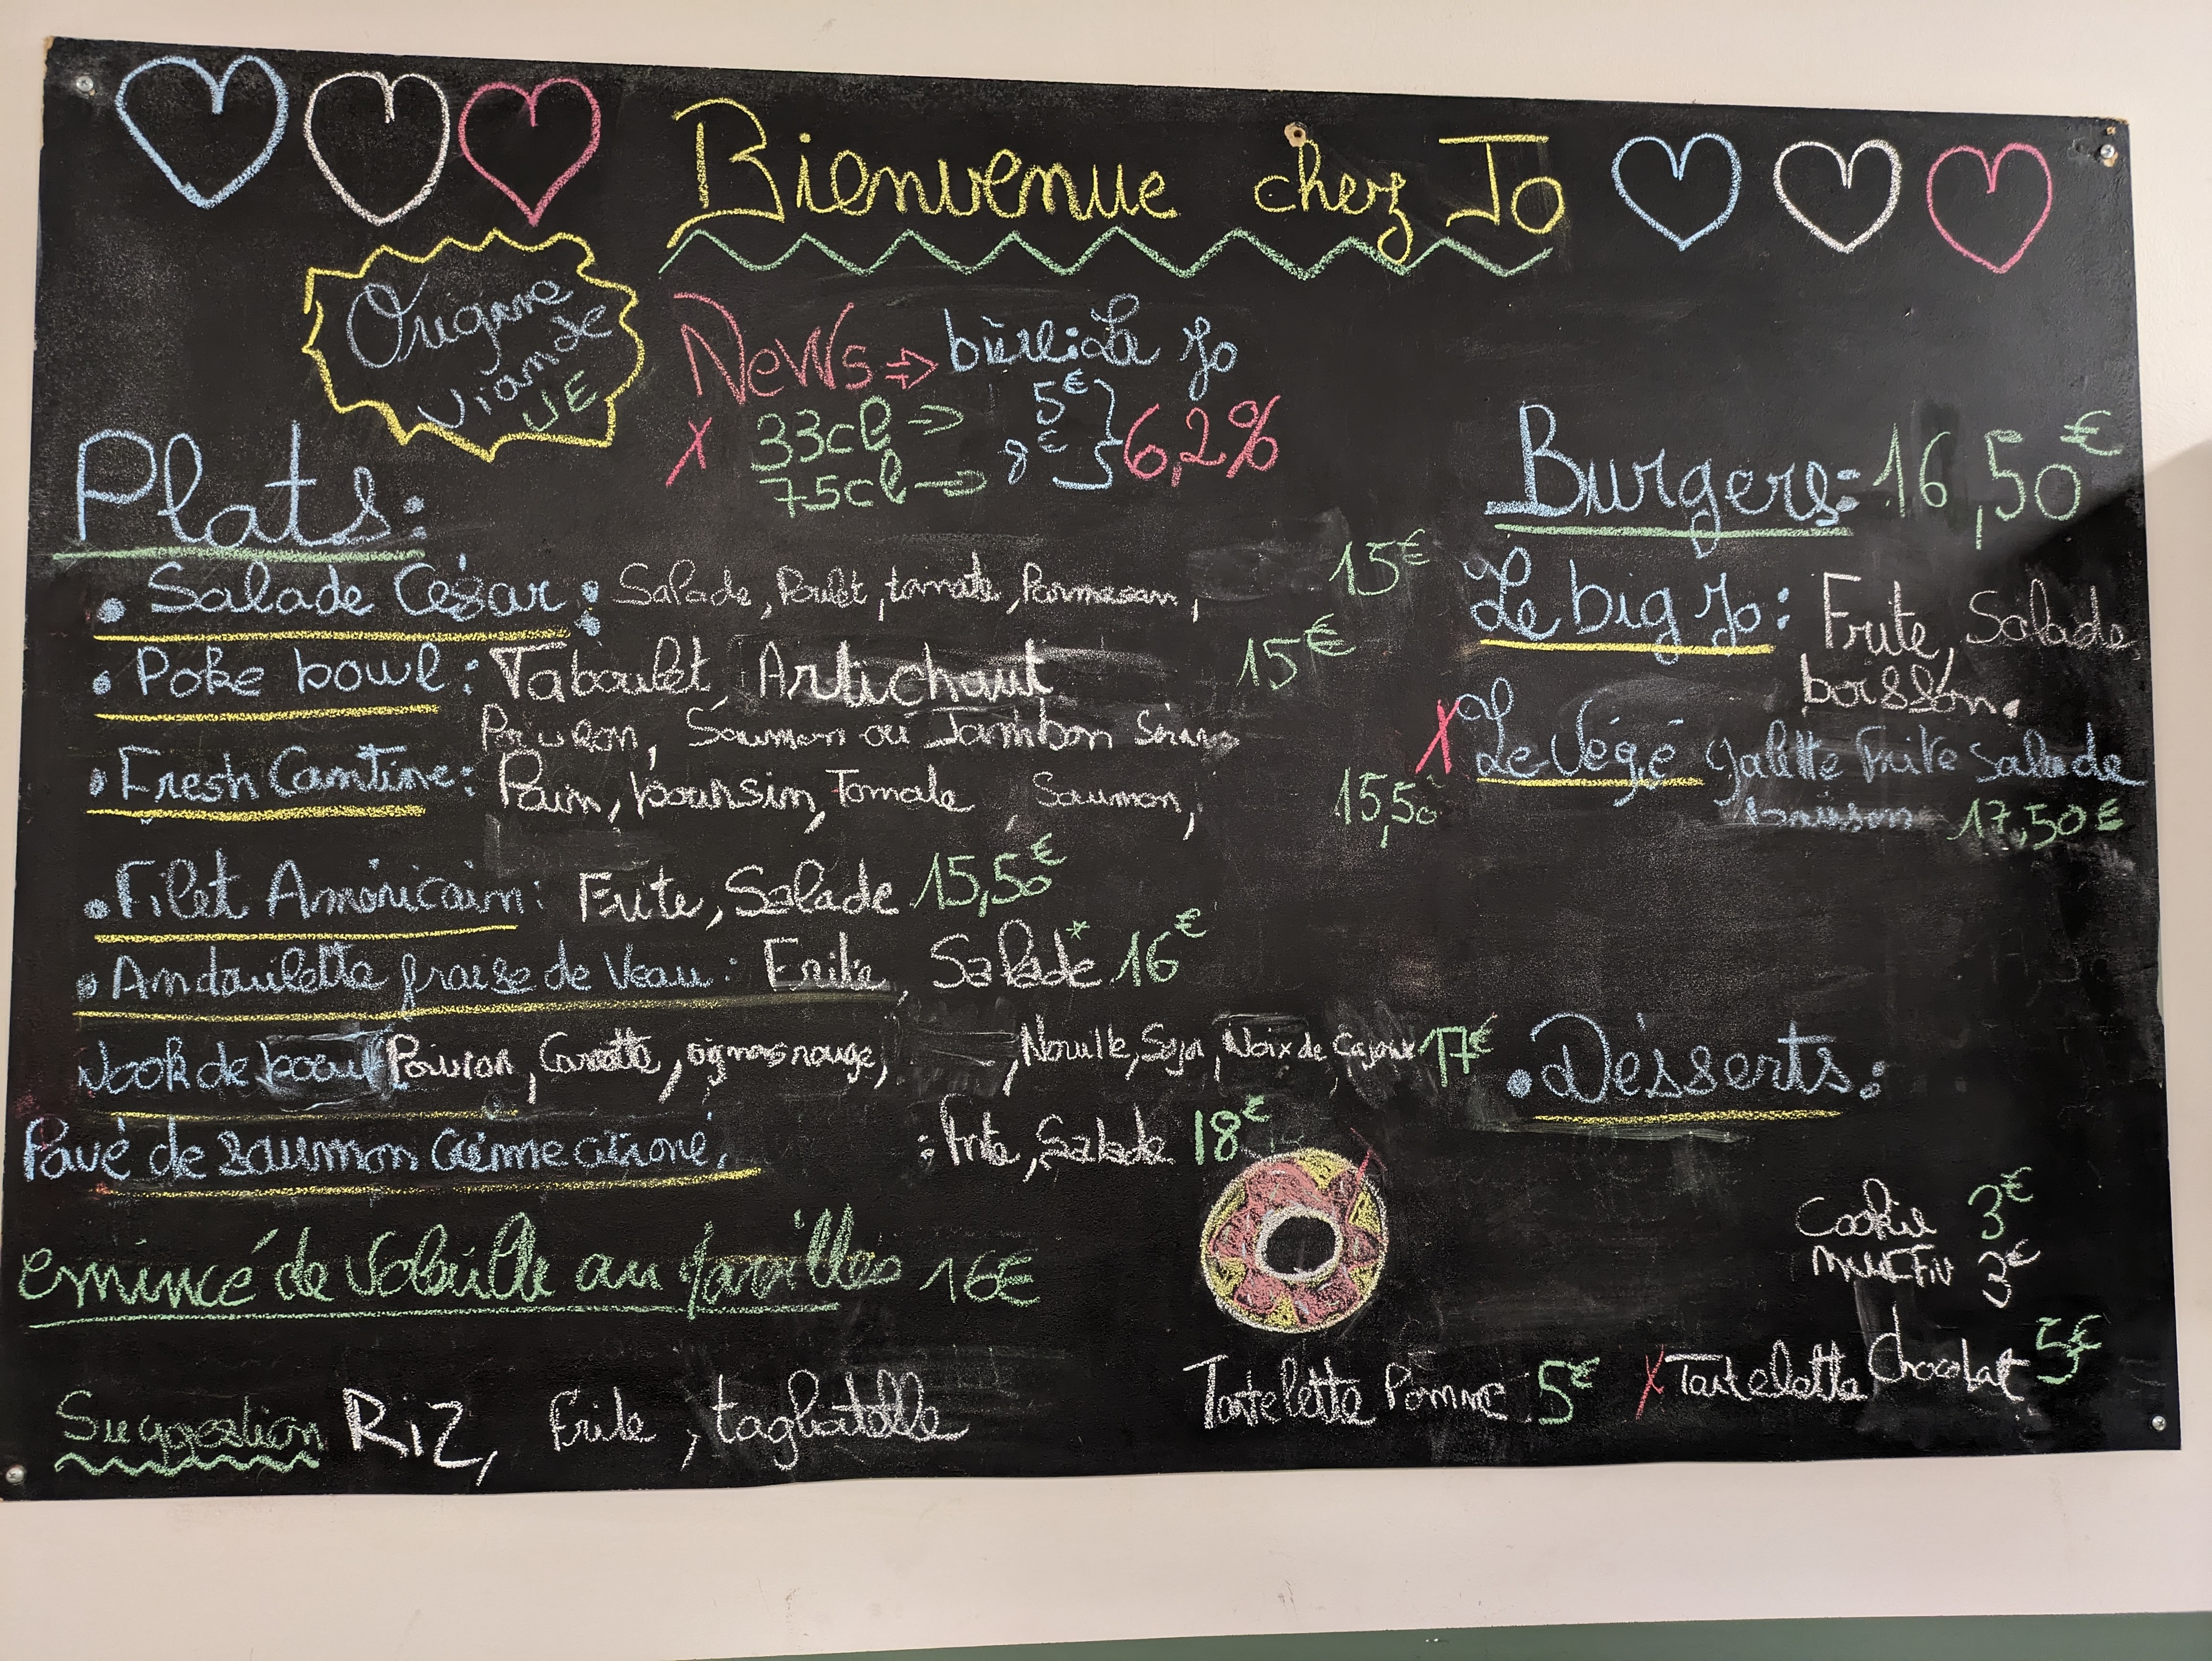 Bienvenue chez Jo
Origine
viande
UE
News ⇒ bière: La Jo
X 33cl ⇒ 5€
75cl ⇒ 8€ } 6,2%
Plats:
• Salade César: Salade, Poulet, tomate, Parmesan, 15€
• Poke bowl: Taboulet, Artichaut 15€
Poivron, Saumon ou Jambon
• Fresh Cantine: Pain, boursin, Tomate Saumon, 15,50
• Filet Américain: Frite, Salade 15,50€
• Andouilette fraise de Veau: Frite, Salade* 16€
Wook de boeuf Poivron, Carotte, oignons rouge, , Nouille, Soja, Noix de Cajoux 17€
Pavé de saumon crème citroné, : frite, Salade 18€
emincé de volaille au 16€
Suggestion Riz, Frite, tagliatelle
Burgers: 16,50€
Le big Jo: Frite, Salade
boisson.
X Le Végé Galette Frite Salade
boisson 17,50€
• Désserts:
Cookie 3€
MUFFiN 3€
Tartelette Pomme 5€
X Tartelette Chocolat 5€